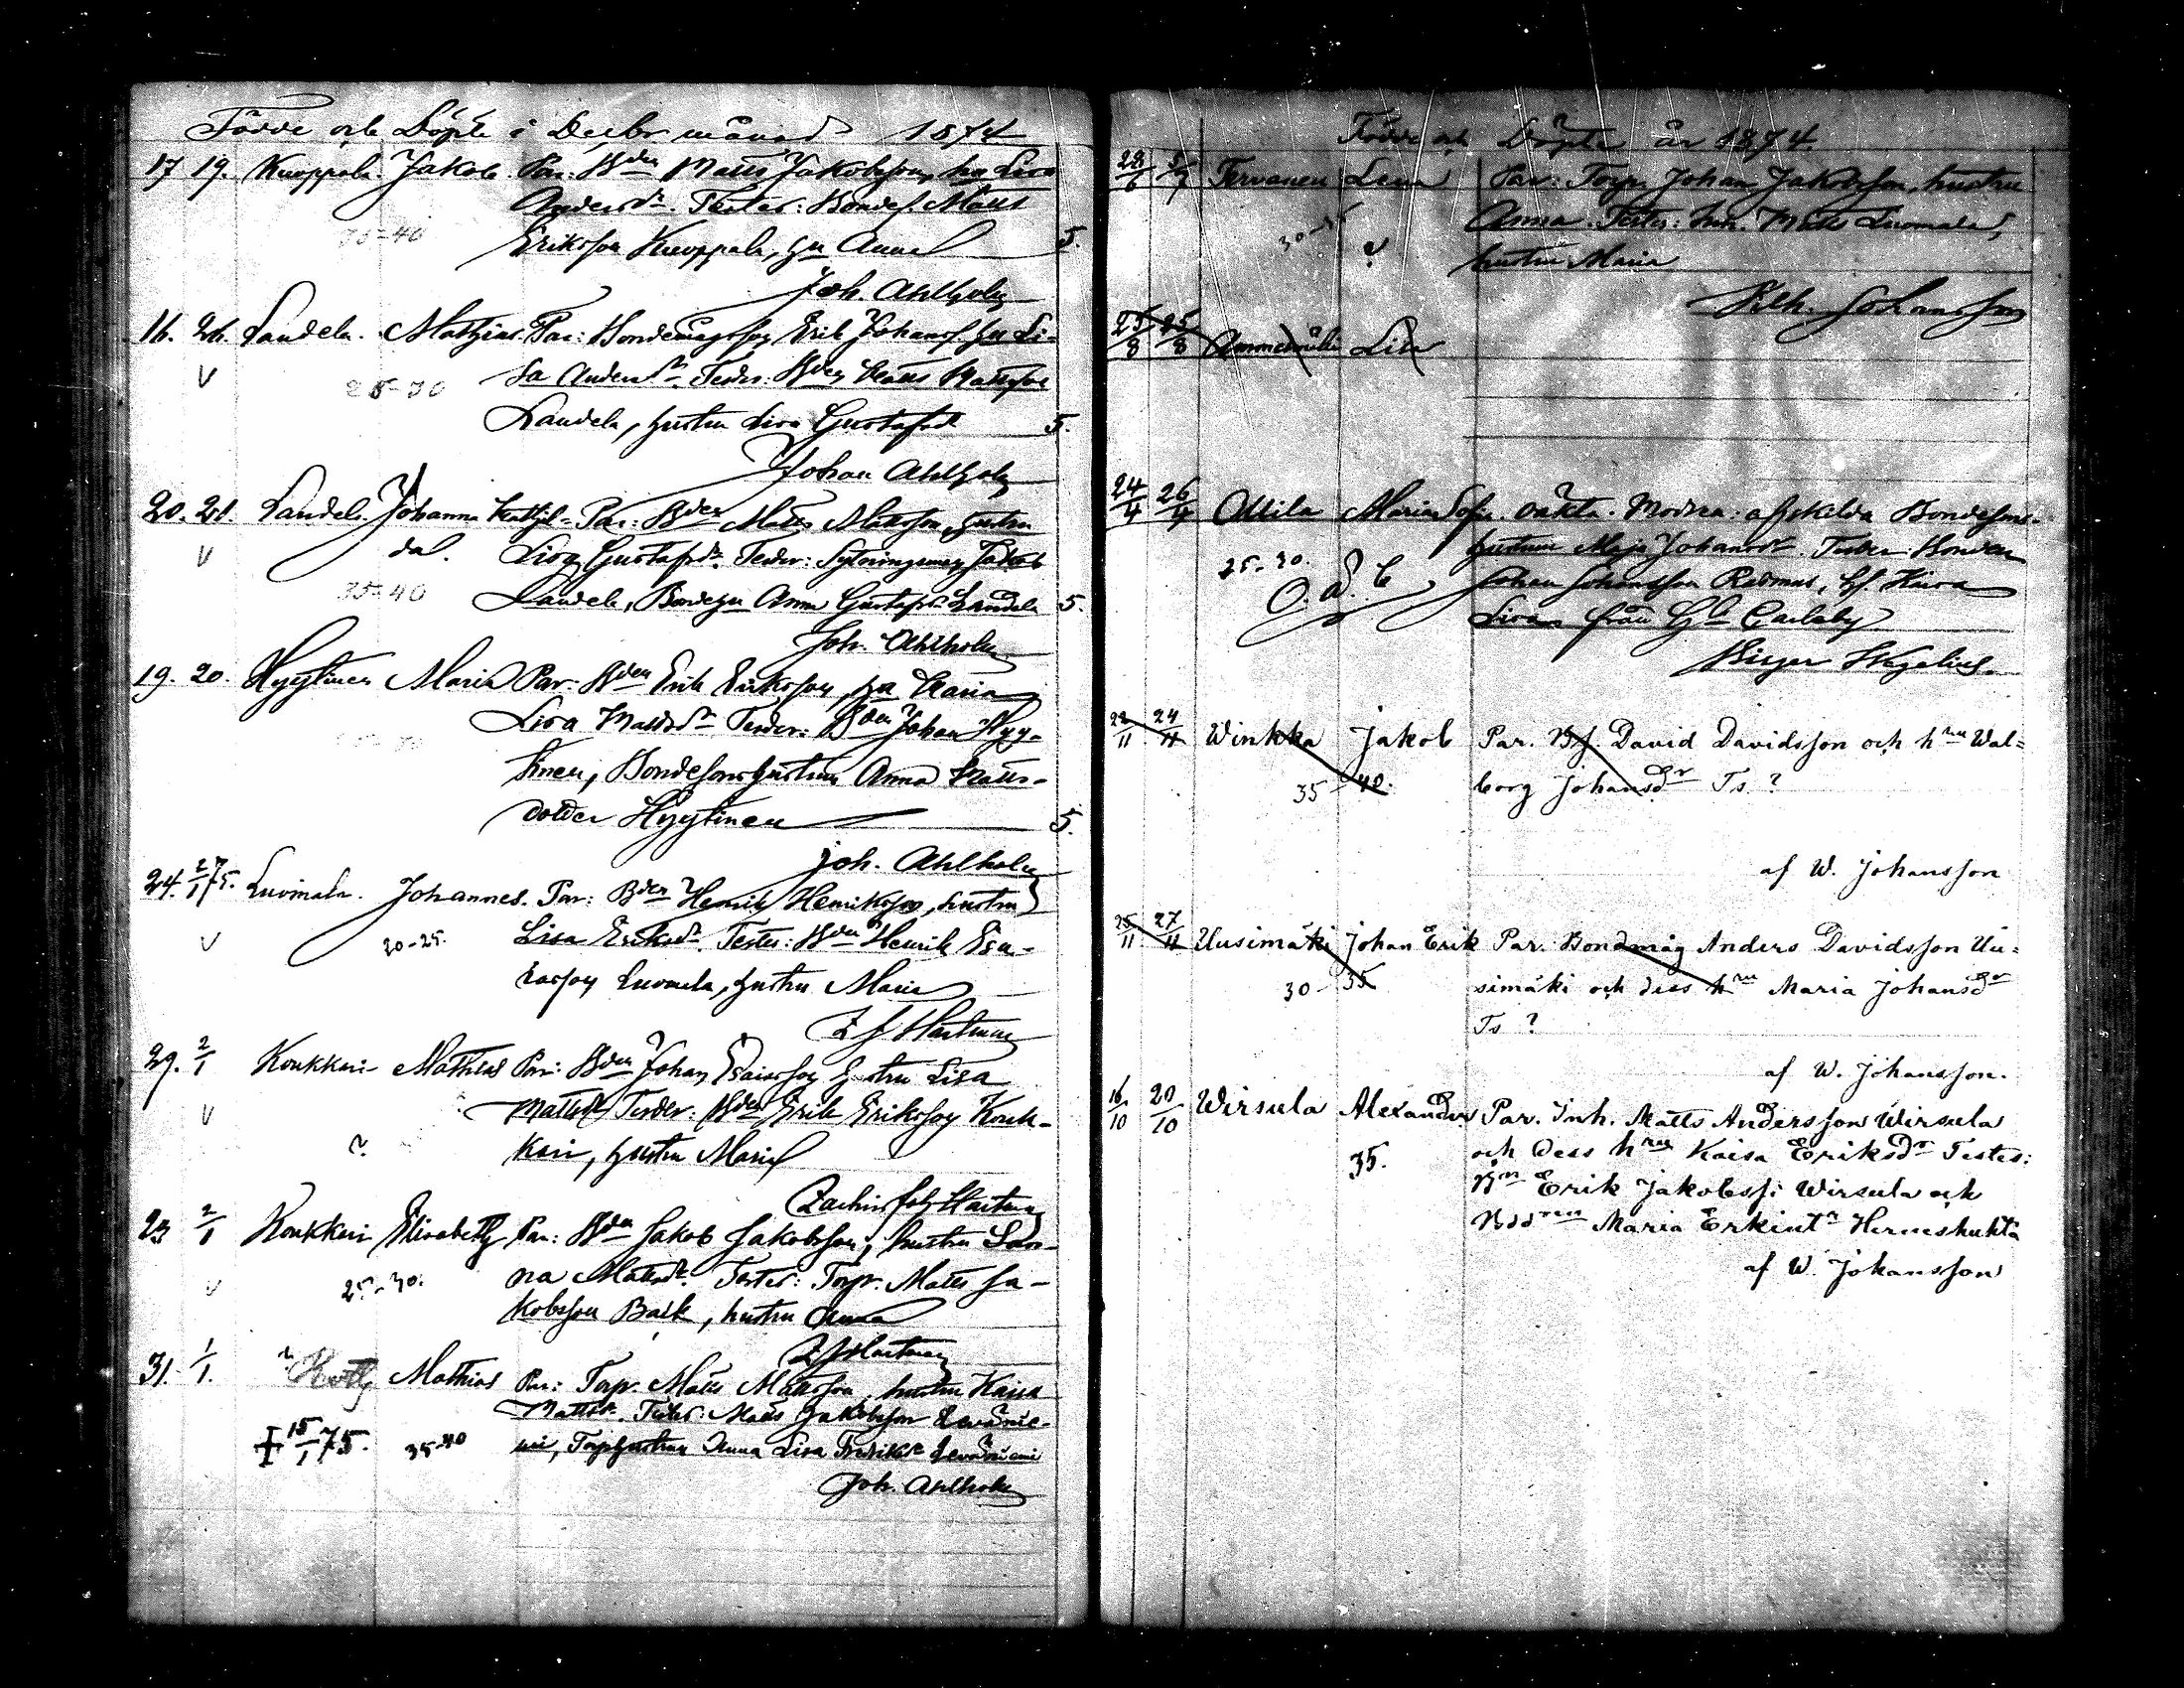 Födde och Döpte i Decbr månad 1874
17 19. Kuoppala. Jakob. Par: Bden Matts Jakobsson, hu Lisa
Andersdr. Testes: Bondes. Matts
30-40 Eriksson Kuoppala, hu Anna 5.
Joh. Ahlholm
16. 26. Sandela. Mathias. Par: Bondemågsson Erik Johanss. hu Li-
V 25-30 sa Andersdr. Testes: Bden Matts Mattsson
Sandela, hustru Lisa Gustafsd 5.
Johan Ahlholm
20. 21. Sandela. Johanna Mathil- Par: Bden Matts Mattsson, hustru
V da. Lisa Gustafsdr. Testes: Sytningsman Jakob
35-40 Sandela, Bondehu Anna Gustafsdr Sandela 5.
Joh. Ahlholm
19. 20. Hyytinen Maria Par: Bden Erik Eriksson, hu Maria
Lisa Mattsdr. Testes: Bden Johan Hyy-
tinen, Bondesonshustrun Anna Matts-
dotter Hyytinen 5.
Joh. Ahlholm
24. 2/1 75. Luomala. Johannes. Par: Bden Henrik Henriksson, hustru
V 20-25. Lisa Eriksdr. Testes: Bden Henrik Esa-
iasson Luomala, hustru Maria
Z J Hartman
29. 2/1 Konkkari Mathias Par: Bden Johan Esaiasson hustru Lisa
V Mattsdr Testes: Bden Erik Eriksson Konk-
? kari, hustru Maria
Zachris Joh Hartman
29 2/1 Konkkari Elisabeth Par: Bden Jakob Jakobsson, hustru San-
V 25-30. na Mattsdr. Testes: Torp. Matts Ja-
kobsson Back, hustru Anna
Z J Hartman
31. 1/1. Mathias Par: Torp. Matts Mattsson, hustru Kaisa
Mattsdr. Testes: Matts Jakobsson Levänie-
+ 15/1 75. 35-40 mi, Torphustrun Anna Lisa Fredriksdr Leväniemi
Joh. Ahlholm
Födde och Döpte år 1874
28/6 5/7 Tervanen Lena Par: Torp. Johan Jakobsson, hustru
Anna. Testes: Matts Luomala,
? hustru Maria
Wilh. Johansson
25/8 25/8 Ammesmäki Lisa
24/4 26/4 Attila Maria Sofia. oäkta. Modren: afskilda Bondesons-
25-30. hustrun Maja Johansdr. Testes: Bonden
O. ä. C Johan Johansson Rudnäs,
Lisa från Gla Carleby
Birger Wegelius.
22/11 24/11 Winkka Jakob Par. Bs. David Davidsson och hru Wal=
35-40. borg Johansdr Ts ?
af W. Johansson
25/11 27/11 Uusimäki Johan Erik Par. Bondmåg Anders Davidsson Uu=
30-35 simäki och dess hru Maria Johansdr
Ts ?
af W. Johansson.
16/10 20/10 Wirsula Alexander Par. Inh. Matts Andersson Wirsula
35. och dess hru Kaisa Eriksdr Testes:
Erik Jakobss: Wirsula och
Maria Erkintr Herneshuhta
af W. Johansson